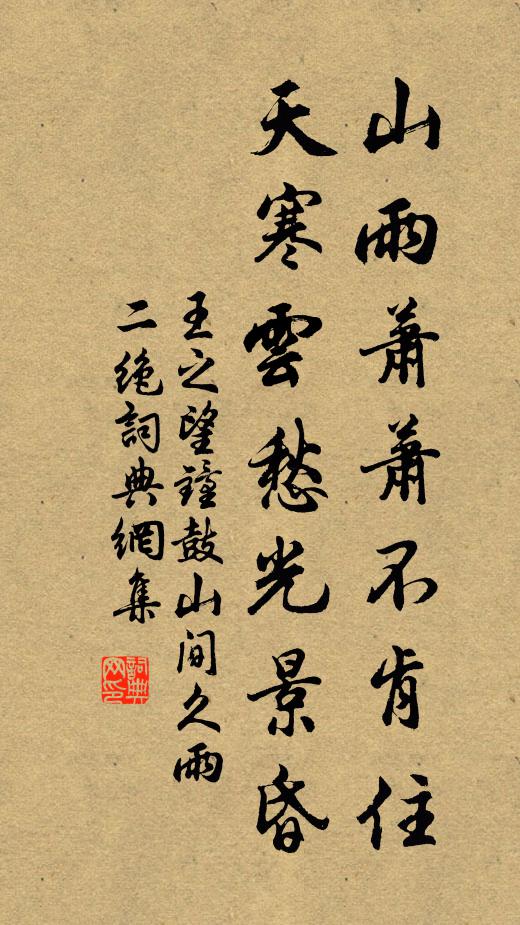 山雨蕭蕭不肯住
天寒雲愁光景昏
王之望鐘鼓山間久雨
二絶詞典網集
詞典
网印